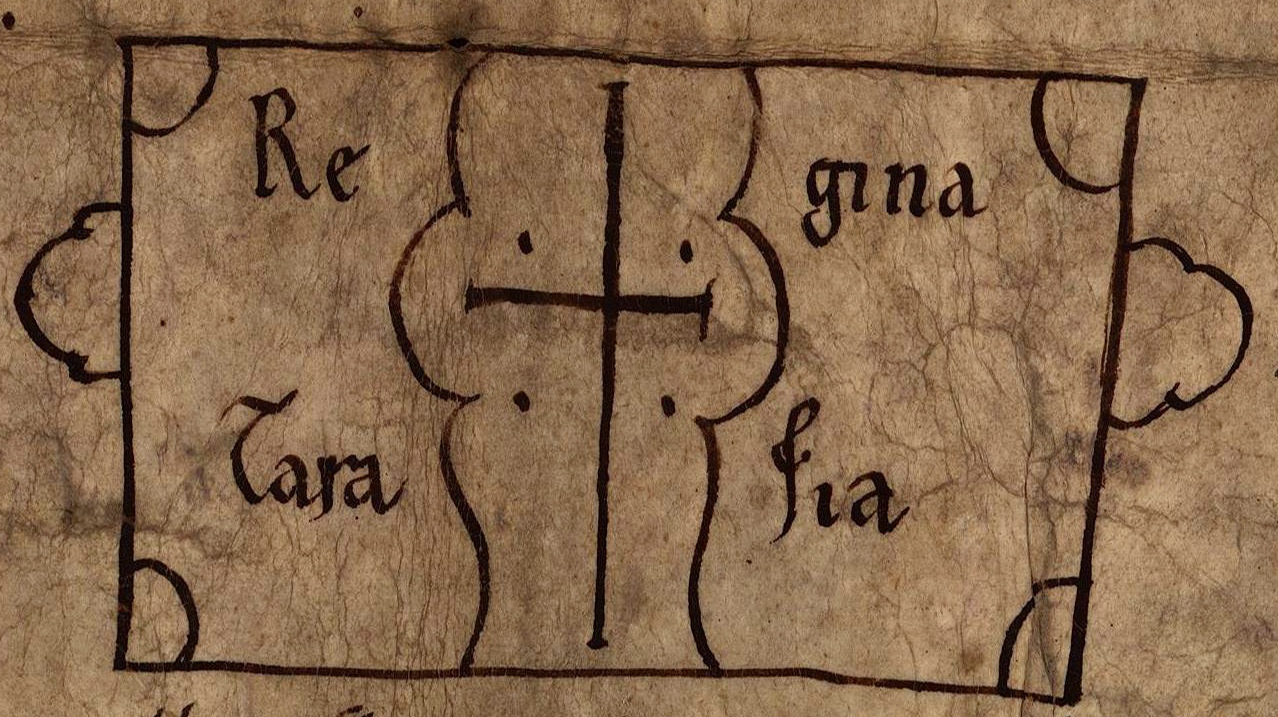 Re gina
Tara sia